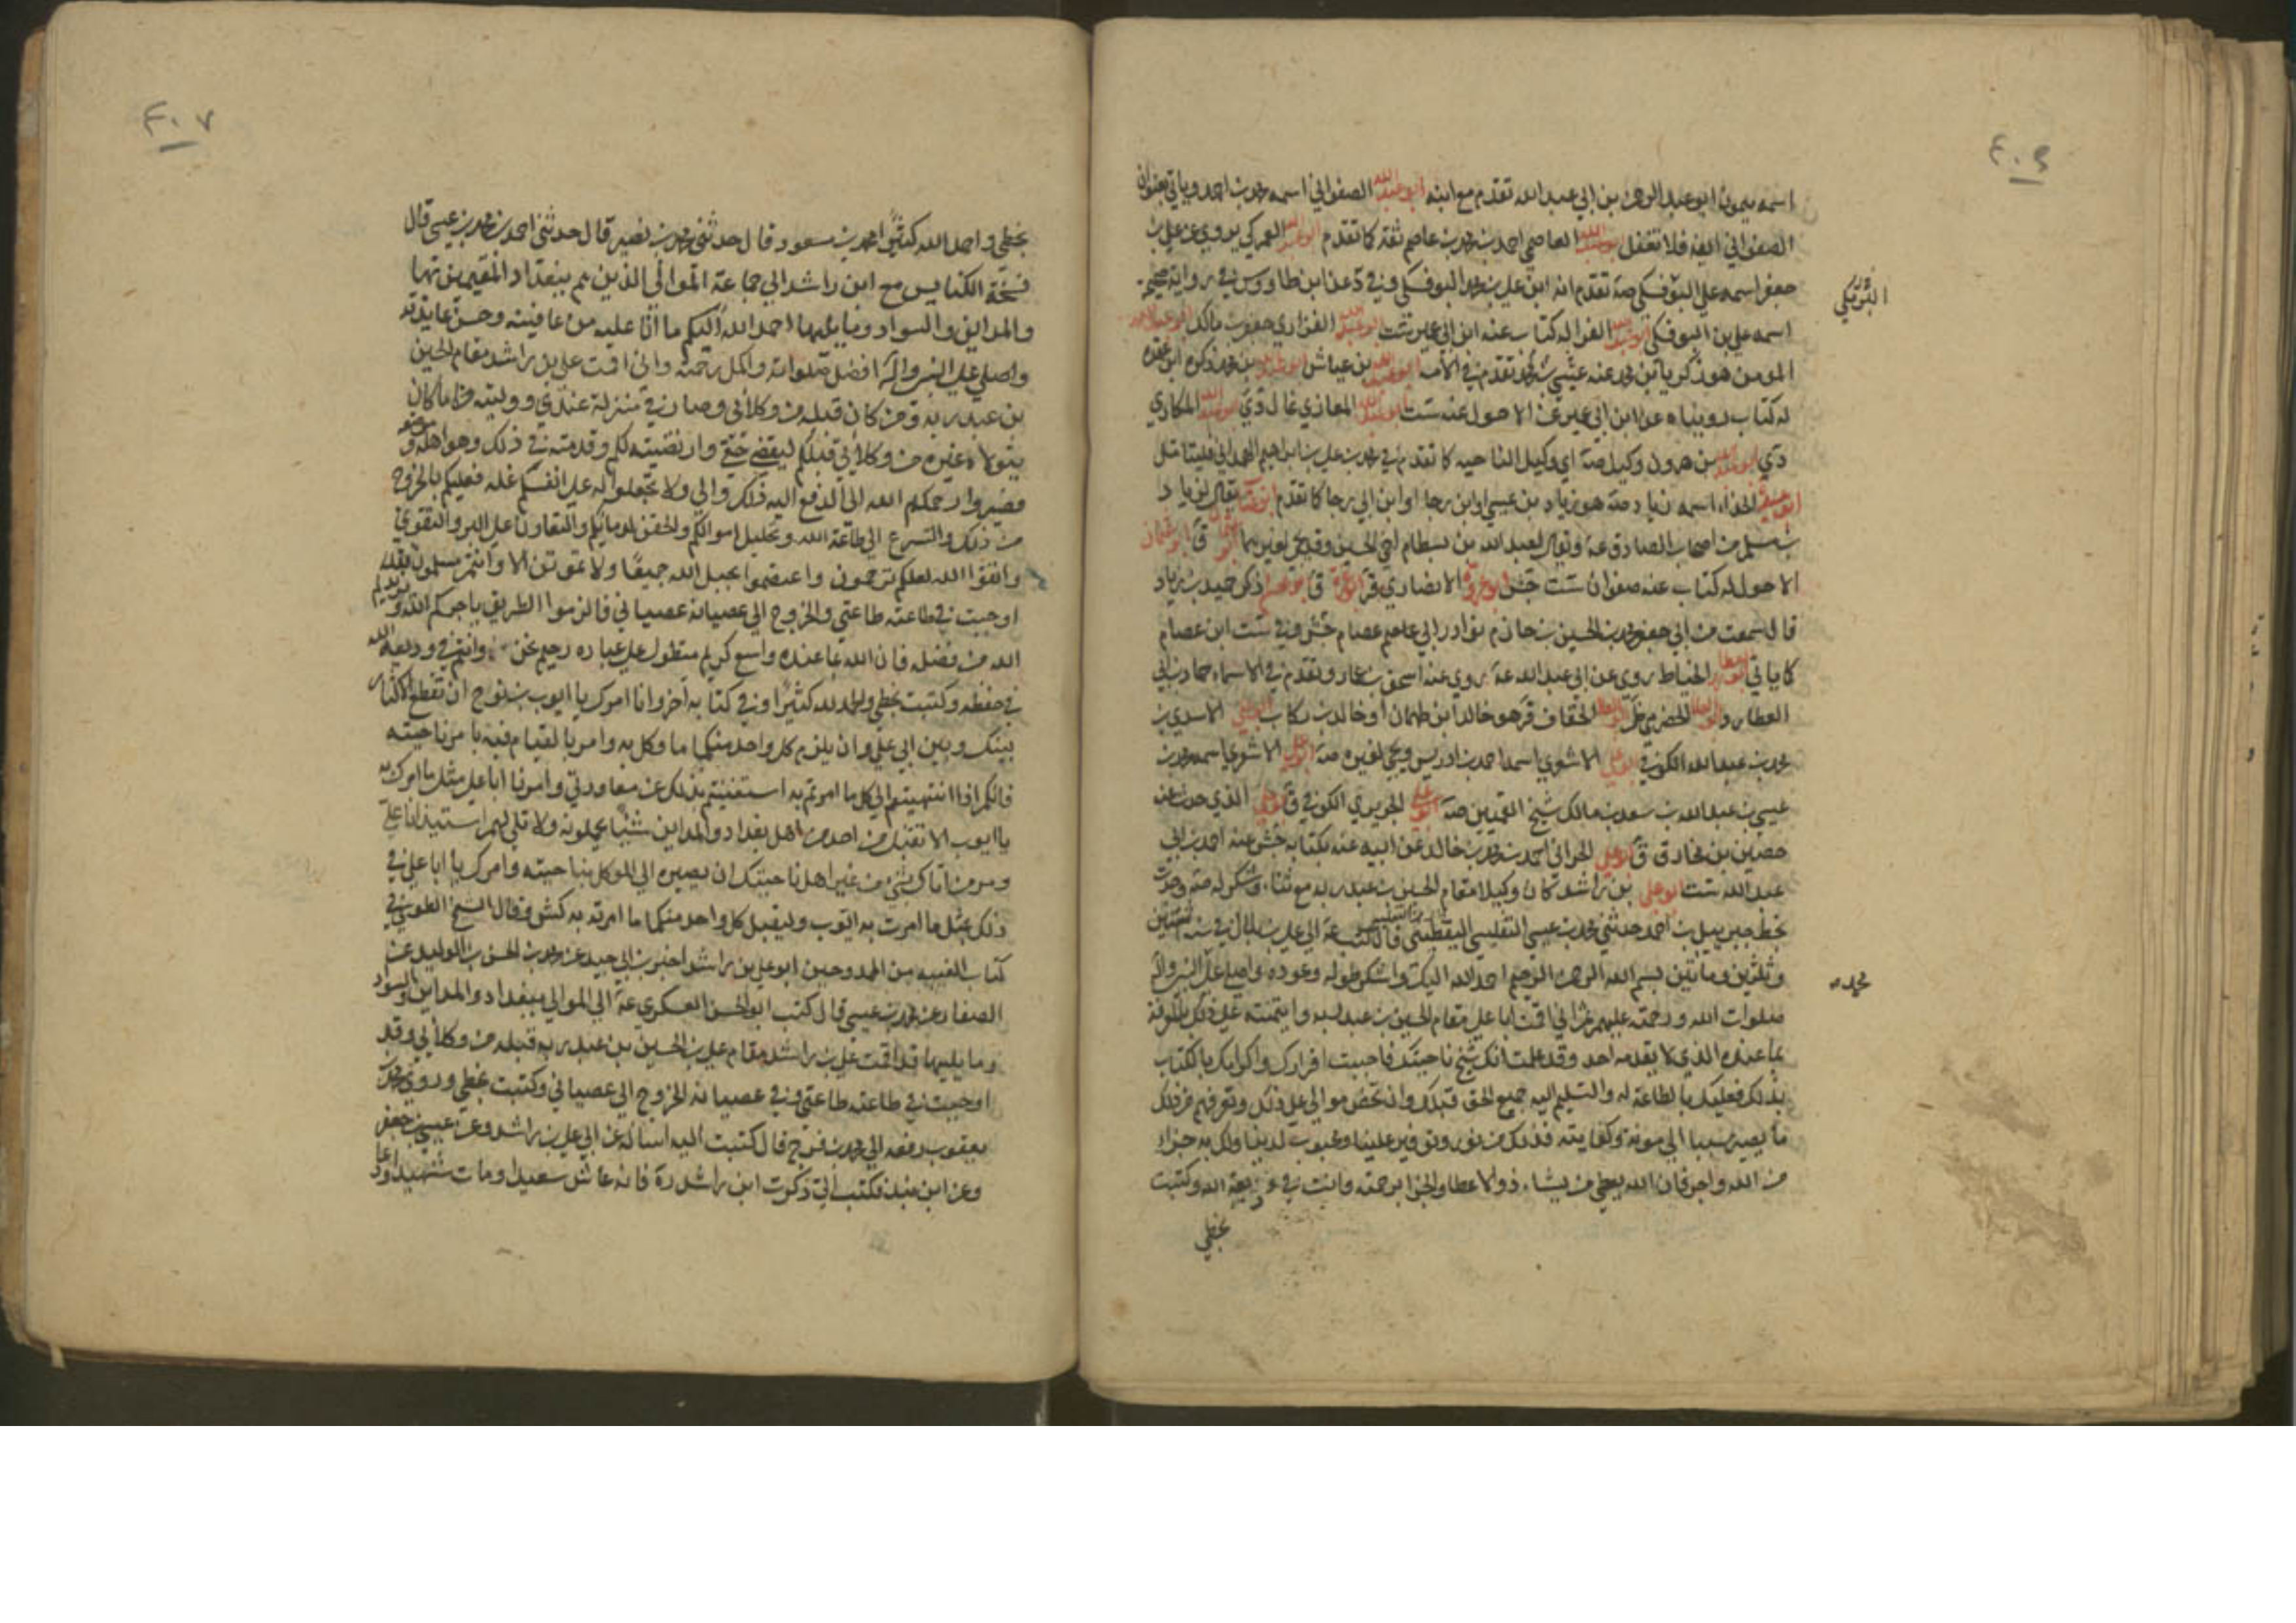 ٤٠٦
اسمه ميمون ابو عبد الرحمن بن ابي عبد الله تقدم مع ابنه ابو عبد الله الصفواني اسمه محمد بن احمد وياتي بعنوان
الصفواني ايضا فلا تغفل ابو عبد الله العاصمي احمد بن محمد بن عاصم ثقة كما تقدم ابو عبد الله العمركي يروي عن علي بن
جعفر اسمه علي البوفكي صه تقدم انه ابن علي بن محمد البوفكي وفي د عن ابن طاووس في رواية صحيحة
البوفكي
اسمه علي بن البوفكي ابو عبد الله الفرا له كتاب عنه ابن ابي عمير ست ابو عبد الله الفزاري جعفر بن مالك
المومن هو زكريا بن محمد عنه تقدم في الاسماء ابو عبد الله بن عياش
له كتاب رويناه عن ابن ابي عمير عن الاحول عنه ست ابو عبد الله المغازي غال دي ابو عبد الله المكاري
دي ابو عبد الله بن هرون وكيل صه اي وكيل الناحيه كما تقدم في محمد بن علي بن ابراهيم الهمداني فليتامل
ابو عبيدة الحذاء اسمه زياد صه هو زياد بن عيسى او ابن رجا او ابن ابي رجا كما تقدم
من اصحاب الصادق عه ويقال لعبد الله بن بسطام اخي الحسين وقد يجي لغيرهما
الاحول له كتاب عنه صفوان ست جش ابو عروة الانصاري ق ذكره حميد بن زياد
قال سمعت من ابي جعفر محمد بن الحسين بن حازم نوادر ابي عاصم عصام جش وفي ست ابن عصام
كما ياتي الخياط روى عن ابي عبد الله عه روى عنه اسحق بن عمار وتقدم في الاسماء حماد بن ابي
العطارد ابو العلا الحضرمي ابو العلا الخفاف ق هو خالد ابن طهمان او خالد بن بكار ابو علي الاسدي بن
محمد بن عبد الله الكوفي ابو علي الاشعري اسمه احمد بن ادريس ويجي لغيره صه ابو علي الاشعري اسمه محمد بن
عيسى بن عبد الله بن سعد بن مالك شيخ القميين صه ابو علي الجريري الكوفي ق ابو علي الذي حدث عن
حصين بن مخارق ق ابو علي الحراني احمد بن محمد بن خالد عن ابيه عنه بكتابه جش عنه احمد بن ابي
عبد الله ست ابو علي بن راشد كان وكيلا مقام الحسين بن عبد ربه مع ثناء وشكر له صه وجدت
بخط جبرييل بن احمد حدثني محمد بن عيسى اليقطيني قال كتب عه الي علي بن بلال في سنه اثنتين
وثلثين ومأتين بسم الله الرحمن الرحيم احمد الله اليك واشكر طوله وعوده واصلي على النبي واله
محمد
صلوات الله ورحمته عليهم ثم اني اقمت ابا علي مقام الحسين بن عبد ربه وايتمنته على ذلك بالمعرفة
بما عنده الذي لا يقدمه احد وقد علمت انك شيخ ناحيتك فاحببت افرادك واكرامك بالكتاب
بذلك فعليك بالطاعة له والتسليم اليه جميع الحق قبلك وان تحض موالي على ذلك وتعرفهم من ذلك
ما يصير سببا الى عونه وكفايته فذلك توفير علينا ومحبوب لدينا ولك به جزاء
من الله واجر فان الله يعطي من يشاء ذو الاعطا والجزا برحمته وانت في وديعة الله وكتبت
بخطي
٤٠٧
بخطي واحمد الله كثيرا محمد بن مسعود قال حدثني محمد بن نصير قال حدثني احمد بن محمد بن عيسى قال
نسخة الكتاب مع ابن راشد الى جماعة الموالي الذين هم ببغداد المقيمين بها
والمداين والسواد وما يليها احمد الله اليكم ما انا عليه من عافيته وحسن عايدته
واصلي على النبي واله افضل صلواته واكمل رحمته واني اقمت علي بن راشد مقام الحسين
بن عبد ربه ومن كان قبله من وكلائي وصار في منزلة عندي ووليته ما كان
يتولاه غيره من وكلائي قبلكم ليقبض حقي وارتضيته لكم وقدمته في ذلك وهو اهله وموضعه
فصيروا رحمكم الله الى الدفع اليه ذلك والي ولا تجعلوا له على انفسكم علة فعليكم بالخروج
من ذلك والتسرع الى طاعة الله وتحليل اموالكم والحقن لدمائكم والتعاون على البر والتقوى
واتقوا الله لعلكم ترحمون واعتصموا بحبل الله جميعا ولا تموتن الا وانتم مسلمون فقد
اوجبت في طاعته طاعتي والخروج الى عصيانه عصياني فالزموا الطريق ياجركم الله ويزيدكم
الله من فضله فان الله بما عنده واسع كريم متطول على عباده رحيم نحن وانتم في وديعة الله
في حفظه وكتبت بخطي والحمد لله كثيرا وفي كتاب آخر وانا آمرك يا ايوب بن نوح ان تقطع الاكثار
بينك وبين ابي علي وان يلزم كل واحد منكما ما وكل به وامر بالقيام فيه بامر ناحيته
فانكم اذا انتهيتم الى كل ما امرتم به استغنيتم بذلك عن معاودتي وآمرك يا ابا علي مثل ما امرك به
يا ايوب الا تقبل من احد من اهل بغداد والمداين شيئا يحملونه ولا تلي لهم استيذانا علي
ومر من اتاك بشي من غير اهل ناحيتك ان يصيره الى الموكل بناحيته وآمرك يا ابا علي في
ذلك بمثل ما امرت به ايوب وليقبل كل واحد منكما ما امرته به كش وقال الشيخ الطوسي في
كتاب الغيبة من الممدوحين ابو علي بن راشد اخبرني ابن ابي جيد عن محمد بن الحسن بن الوليد عن
الصفار عن محمد بن عيسى قال كتب ابو الحسن العسكري عه الى الموالي ببغداد والمداين والسواد
وما يليها قد اقمت علي بن راشد مقام علي بن الحسين بن عبد ربه قبله من وكلائي وقد
اوجبت في طاعته طاعتي وفي عصيانه الخروج الى عصياني وكتبت بخطي وروى محمد بن
يعقوب رفعه الى محمد بن فرج قال كتبت اليه اساله عن ابي علي بن راشد وعن عيسى بن جعفر
وعن ابن بند فكتب الي ذكرت ابن راشد ره فانه عاش سعيدا ومات شهيدا